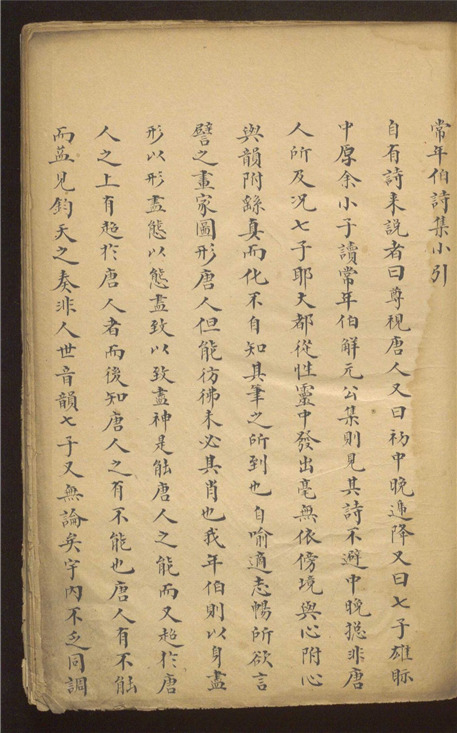 常年伯詩集小引
自有詩来説者曰尊視唐人又曰初中晚遞降又曰七子雄眎
中原余小子讀常年伯解元公集則見其詩不避中晚揔非唐
人所及况七子耶大都從性靈中發出毫無依傍境與心附心
與韻附錄真而化不自知其筆之所到也自喻適志暢所欲言
譬之畫家圖形唐人但能彷彿未必其肖也我年伯則以身盡
形以形盡態以態盡致以致盡神是能唐人之能而又超扵唐
人之上有超扵唐人者而後知唐人之有不能也唐人有不能
而益見鈞天之奏非人世音韻七子又無論矣宇内不乏同調